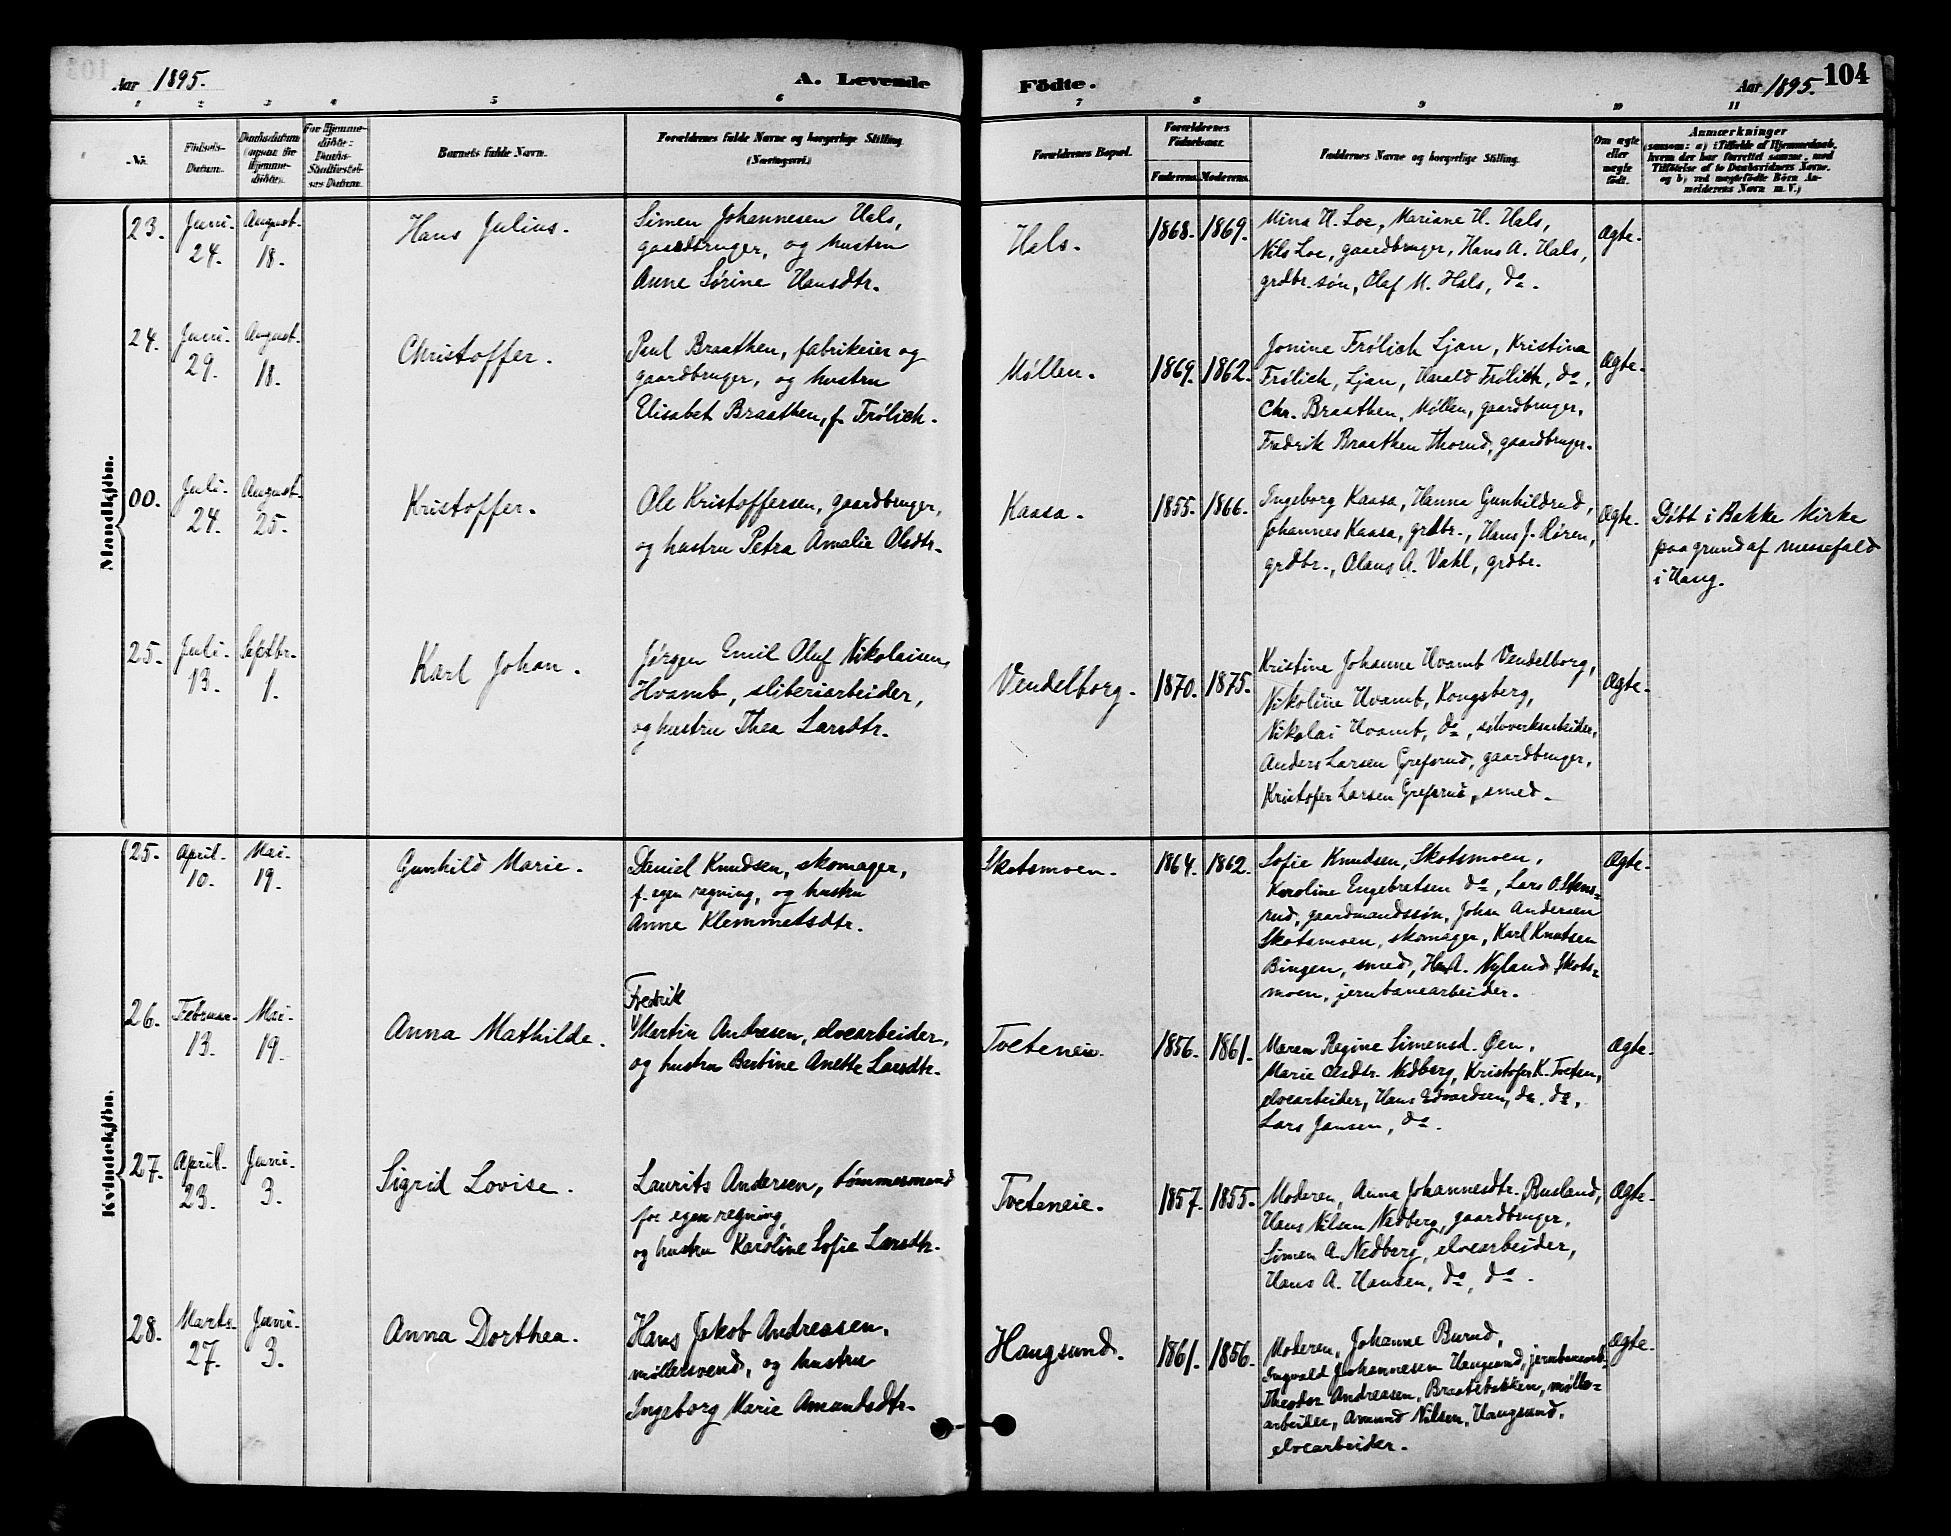 Aar 1895. A. Levende Födte. Aar 1895. 104
1 2 3 4 5 6 7 8 9 10 11
Nr.
Födsels-
Datum.
Daabsdatum
For Hjemme-
döbte:
Daabs-
Barnets fulde Navn.
Forældrenes fulde Navne og borgerlige Stilling
(Næringsvei.)
Forældrenes Bopæl.
Forældrenes
Födselsaar.
Faderens. Moderens.
Faddernes Navne og borgerlige Stilling.
Om ægte
eller
uægte
födt.
Anmærkninger
(saasom: a) i Tilfælde af Hjemmedaab,
hvem der har forrettet samme, med
Tilföielse af to Daabsvidners Navne,
og b) ved uægtefödte Börn An-
melderens Navn m. V.)
Mandkjön.
23. Juni 24. August 18.
Hans Julius.
Simen Johannesen Hals,
gaardbruger, og hustru
Anne Sørine Hansdtr.
Hals.
1868. 1869.
Mina H. Loe, Mariane H. Hals,
Nils Loe, gaardbruger, Hans A. Hals,
grdbr. søn, Olaf M. Hals, do.
Ægte.
24. Juni 29. August 18.
Christoffer.
Paul Braathen, fabrikeier og
gaardbruger, og hustru
Elisabet Braathen, f. Frölich.
Møllen.
1869. 1862.
Jonine Frölich Ljan, Kristina
Frölich, Ljan, Harald Frölich, do,
Chr. Braathen, Møllen, gaardbruger,
Fredrik Braathen Thorud, gaardbruger.
Ægte.
00. Juli 24. August 25.
Kristoffer.
Ole Kristoffersen, gaardbruger,
og hustru Petra Amalie Olsdtr.
Kaasa.
1855. 1866.
Ingeborg Kaasa, Hanna Gunhildrud,
Johannes Kaasa, grdbr., Hans J. Røren,
grdbr., Olaus A. Vahl, grdbr.
Ægte.
Döbt i Bakke Kirke
paa grund af messefald
i Haug.
25. Juli 13. Septbr. 1.
Karl Johan.
Jørgen Emil Oluf Nikolaisen,
Hvamb, sliberiarbeider,
og hustru Thea Larsdtr.
Vendelborg.
1870. 1875.
Kristine Johanne Hvamb Vendelborg,
Nikoline Hvamb, Kongsberg,
Nikolai Hvamb, do, sølvverksarbeider,
Anders Larsen Grefsrud, gaardbruger,
Kristofer Larsen Grefsrud, smed.
Ægte.
Kvindekjön.
25. April 10. Mai 19.
Gunhild Marie.
Daniel Knudsen, skomager,
f. egen regning, og hustru
Anne Klemmetsdtr.
Skotsmoen.
1864. 1862.
Sofie Knudsen, Skotsmoen,
Karoline Engebretsen do, Lars O. Stens-
rud, gaardmandssøn, Johan Andersen
Skotsmoen, skomager, Karl Knutsen
Bingen, smed, H. A. Nyland Skots-
moen, jernbanearbeider.
Ægte.
26. Februar 13. Mai 19.
Anna Mathilde.
Fredrik
Martin Andresen, elvearbeider,
og hustru Bertine Anette Larsdtr.
Tveteneie.
1856. 1861.
Maren Regine Simensd. Øen,
Marie Olsdtr. Nedberg, Kristofer K. Tveten,
elvearbeider, Hans Edvardsen, do. do,
Lars Jansen, do.
Ægte.
27. April 23. Juni 3.
Sigrid Lovise.
Laurits Andersen, tömmermand
for egen regning,
og hustru Karoline Sofie Larsdtr.
Tveteneie.
1857. 1855.
Moderen, Anna Johannesdtr. Rusland,
Hans Nilsen Nedberg, gaardbruger,
Simen A. Nedberg, elvearbeider,
Hans A. Hansen, do, do.
Ægte.
28. Marts 27. Juni 3.
Anna Dorthea.
Hans Jakob Andreasen,
møllersvend, og hustru
Ingeborg Marie Amundsdtr.
Haugsund.
1861. 1856.
Moderen, Johanne Burud,
Ingvald Johannesen Haugsund, jernbanearb.
Theodor Andreasen, Braatebakken, mølle-
arbeider, Amund Nilsen, Haugsund,
elvearbeider.
Ægte.